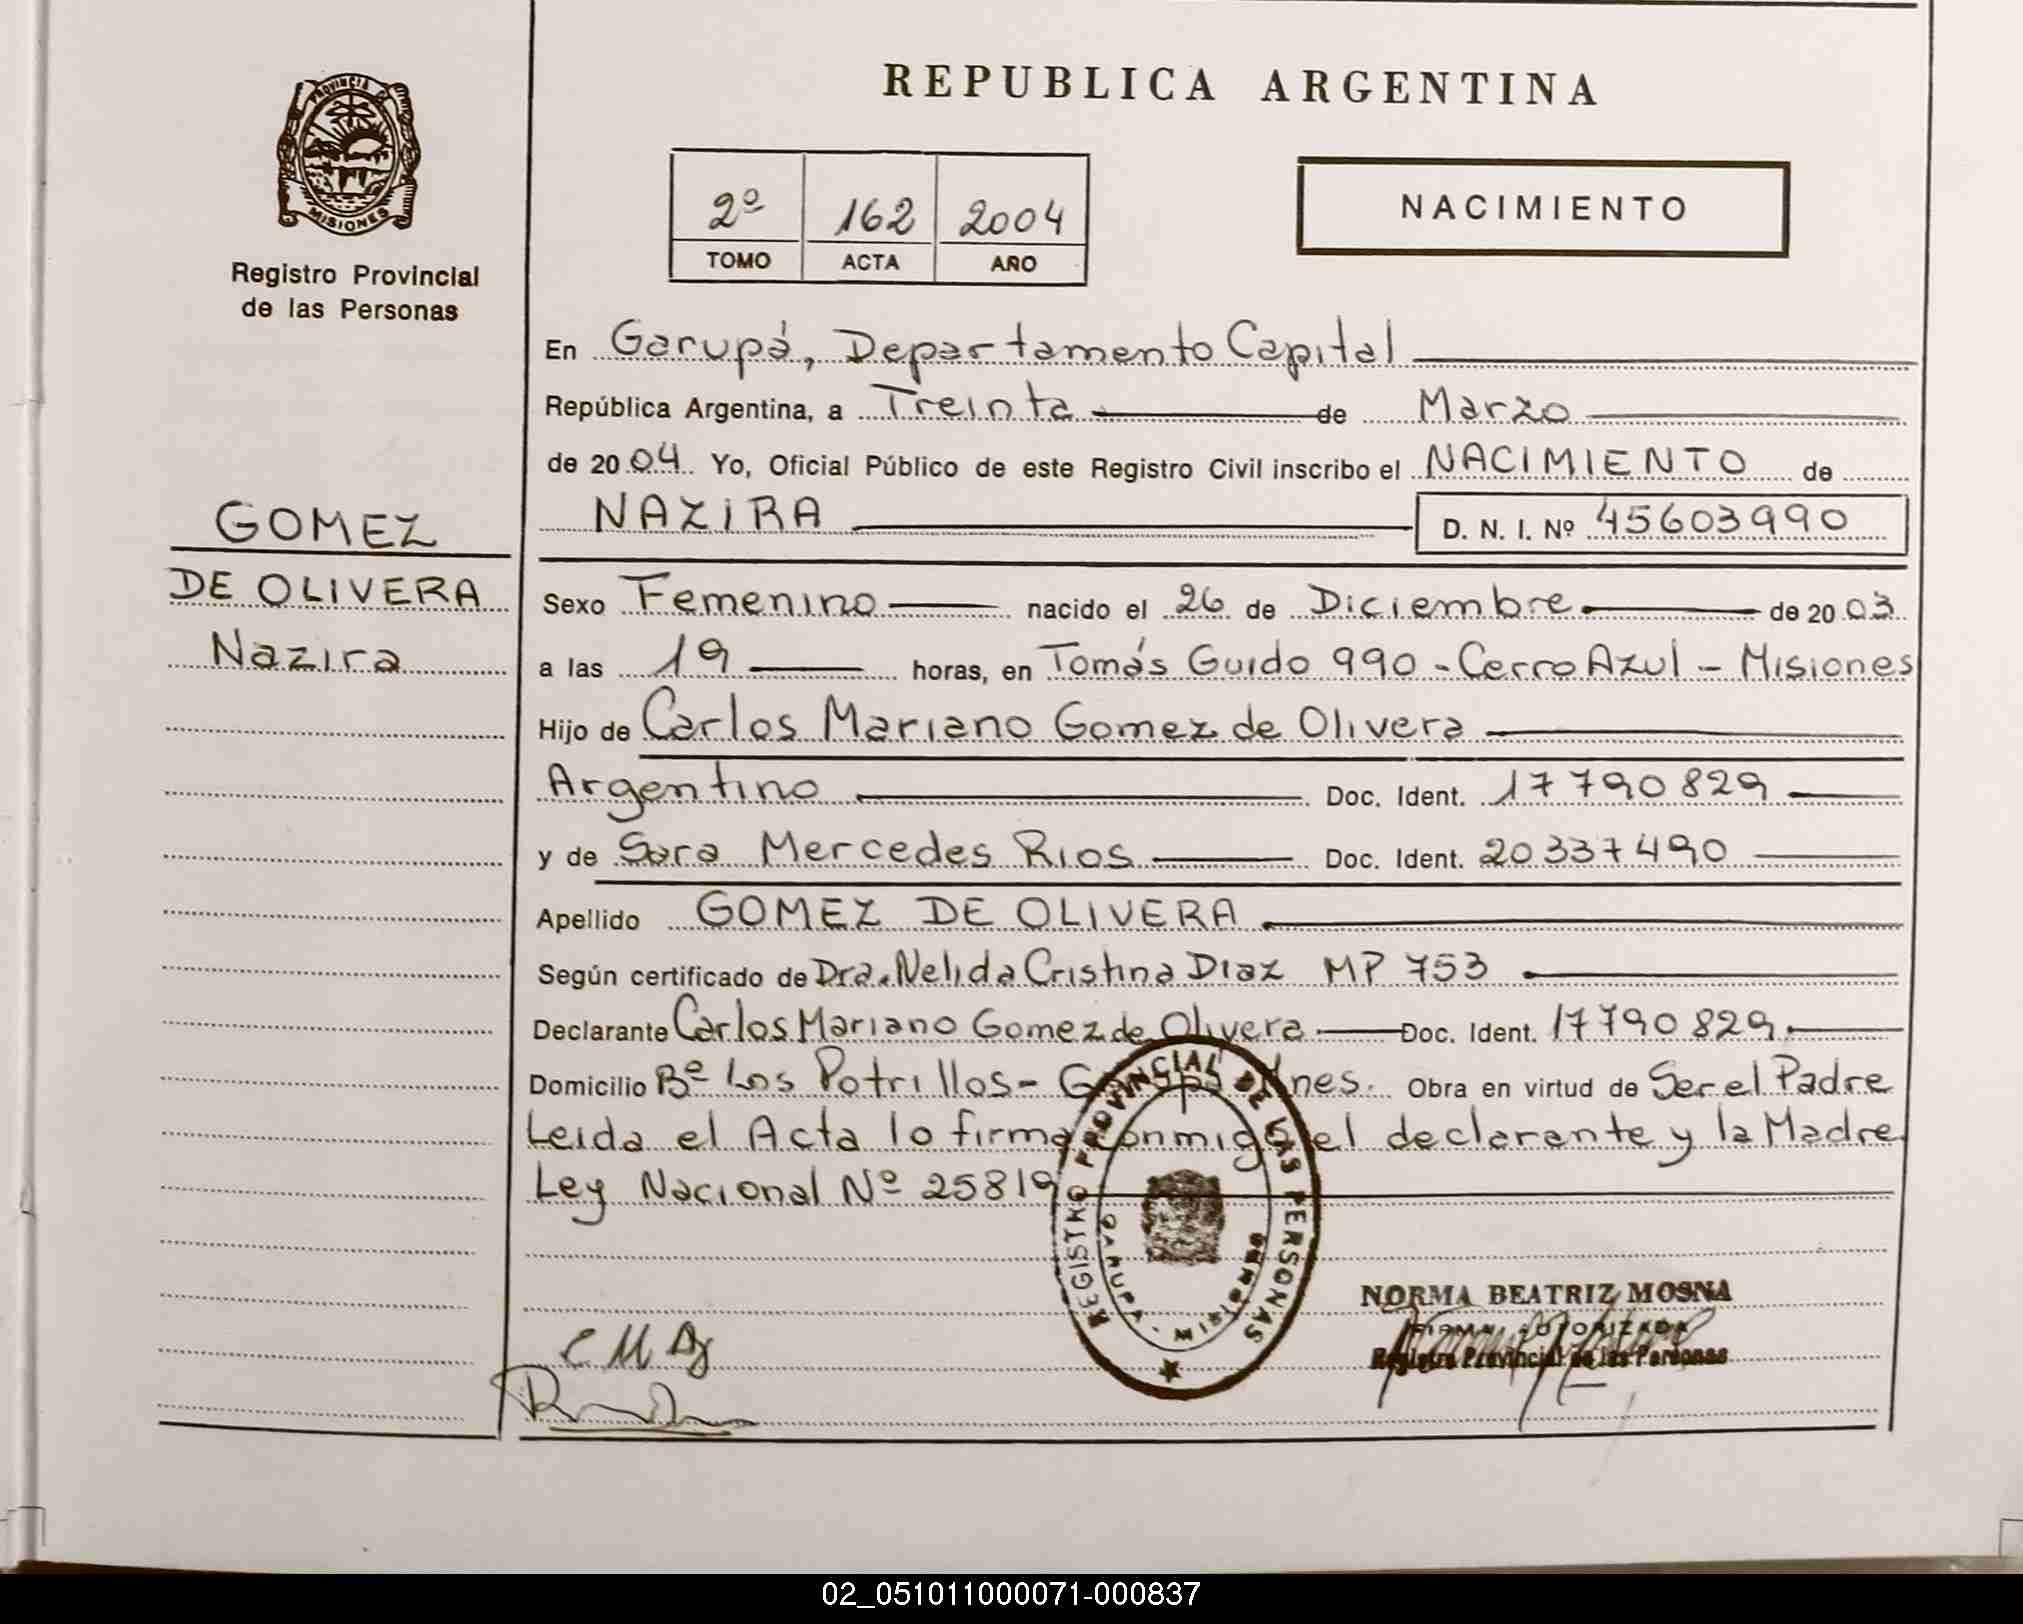 PROVINCIA D
MISIONES
Registro Provincial
de las Personas
GOMEZ
DE OLIVERA
Nazira
REPUBLICA ARGENTINA
2º 162 2004
TOMO ACTA AÑO
NACIMIENTO
En Garupá, Departamento Capital
República Argentina, a Treinta de Marzo
de 2004 Yo, Oficial Público de este Registro Civil inscribo el NACIMIENTO de
NAZIRA D. N. I. Nº 45603990
Sexo Femenino nacido el 26 de Diciembre de 2003
a las 19 horas, en Tomás Guido 990 - Cerro Azul - Misiones
Hijo de Carlos Mariano Gomez de Olivera
Argentino Doc. Ident. 17790829
y de Sara Mercedes Rios Doc. Ident. 20337490
Apellido GOMEZ DE OLIVERA
Según certificado de Dra. Nelida Cristina Diaz MP 753
Declarante Carlos Mariano Gomez de Olivera Doc. Ident. 17790829
Domicilio Bº Los Potrillos - Mnes. Obra en virtud de Ser el Padre
Leida el Acta lo firma conmigo el declarante y la Madre
Ley Nacional Nº 25819
REGISTRO PROVINCIAL DE LAS PERSONAS
GARUPA
NORMA BEATRIZ MOSNA
FIRMA AUTORIZADA
Registro Provincial de las Personas
02_051011000071-000837